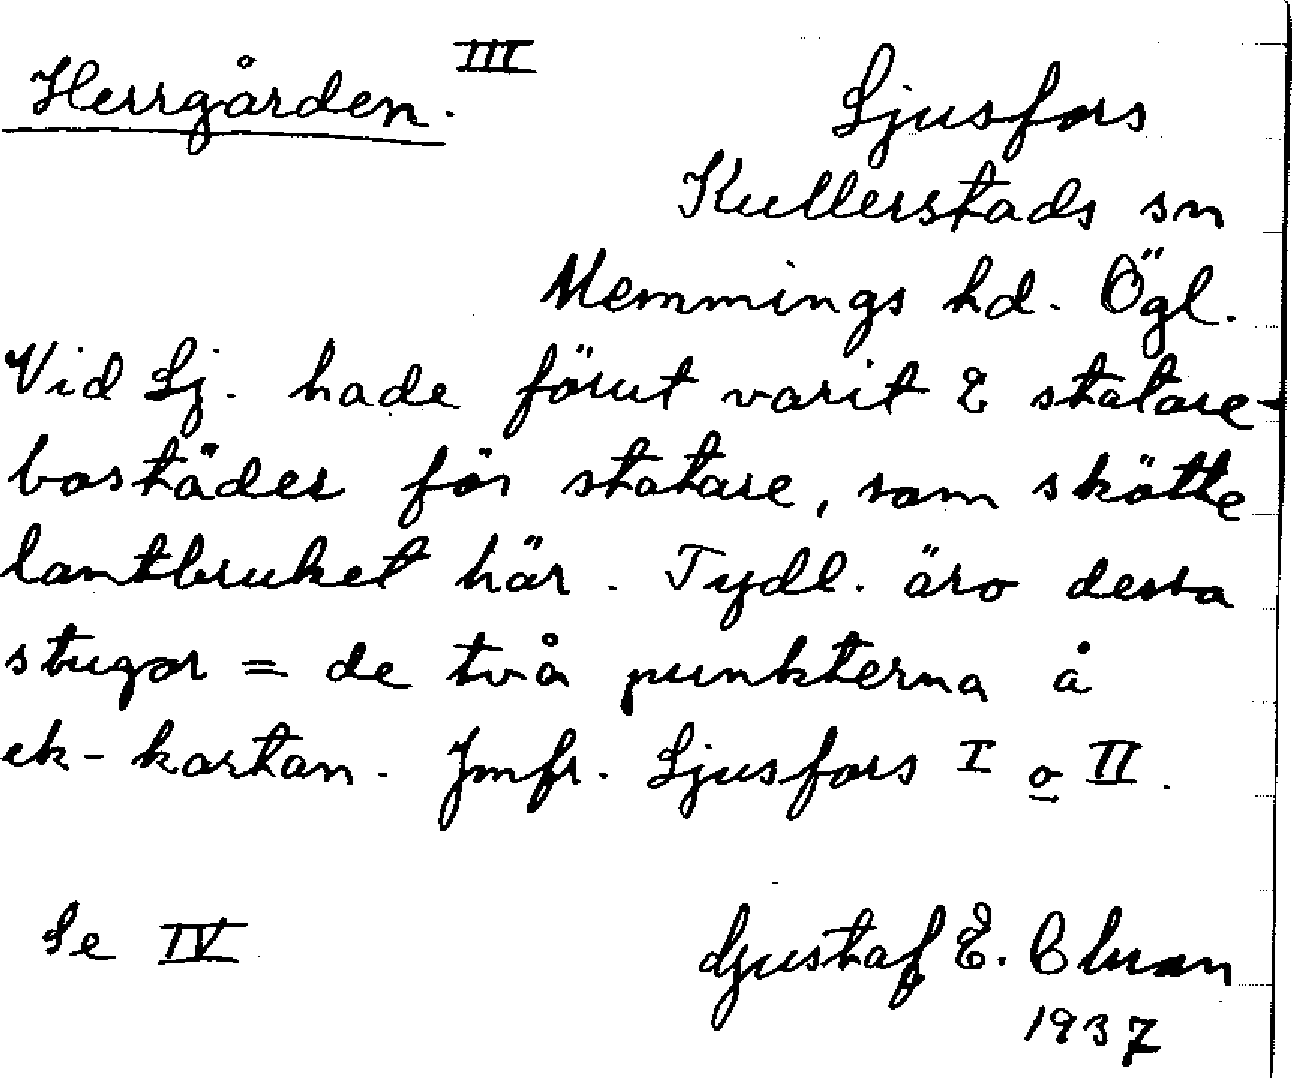 Herrgården. III
Ljusfors
Kullerstads sn
Memmings hd. Ögl.
Vid Lj. hade förut varit 2 statare-
bostäder för statare, som skötte
lantbruket här. Tydl. äro dessa
stugor = de två punkterna å
ek-kartan. Jmfr. Ljusfors I o II.
Se IV
Gustaf E.
1937